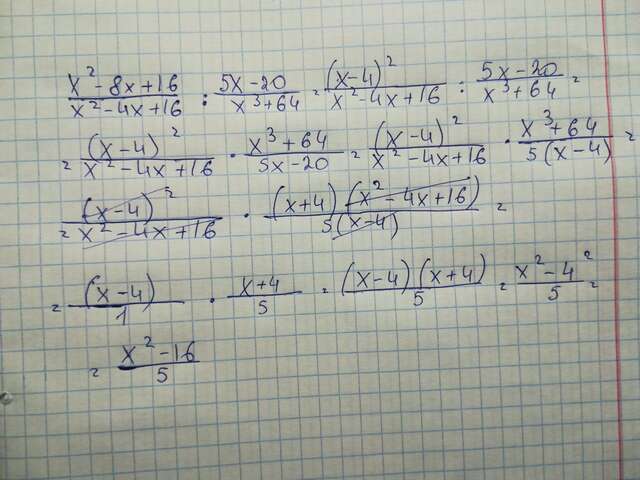 (x²-8x+16)/(x²-4x+16) : (5x-20)/(x³+64) = (x-4)²/(x²-4x+16) : (5x-20)/(x³+64) =
= (x-4)²/(x²-4x+16) · (x³+64)/(5x-20) = (x-4)²/(x²-4x+16) · (x³+64)/(5(x-4)) =
= (x-4)²/(x²-4x+16) · (x+4)(x²-4x+16)/(5(x-4)) =
= (x-4)/1 · (x+4)/5 = (x-4)(x+4)/5 = (x²-4²)/5 =
= (x²-16)/5